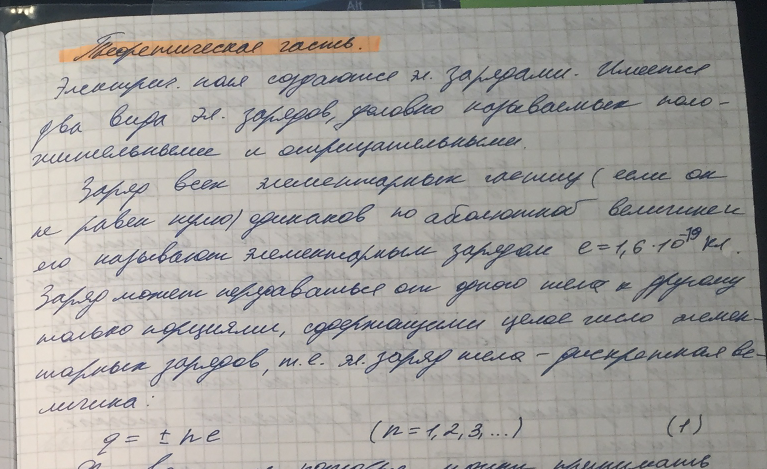 Теоретическая часть.
Электрич. поля создаются эл. зарядами. Имеется
два вида эл. зарядов, условно называемых поло-
жительными и отрицательными.
Заряд всех элементарных частиц (если он
не равен нулю) одинаков по абсолютной величине и
его называют элементарным зарядом e = 1,6·10⁻¹⁹ Кл.
Заряд может передаваться от одного тела к другому
только порциями, содержащими целое число элемен-
тарных зарядов, т.е. эл. заряд тела – дискретная ве-
личина:
q = ± ne (n = 1,2,3,...) (1)